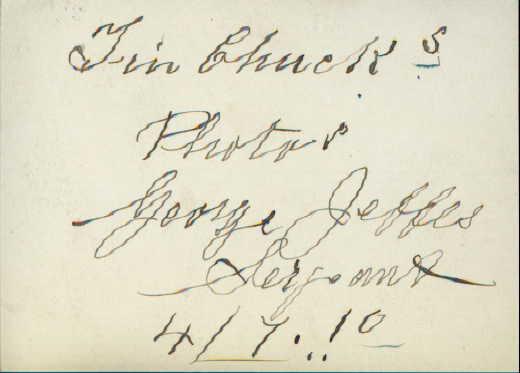 Tin Chuck's
Photos
George Jeffes
Sergant
4/7..10